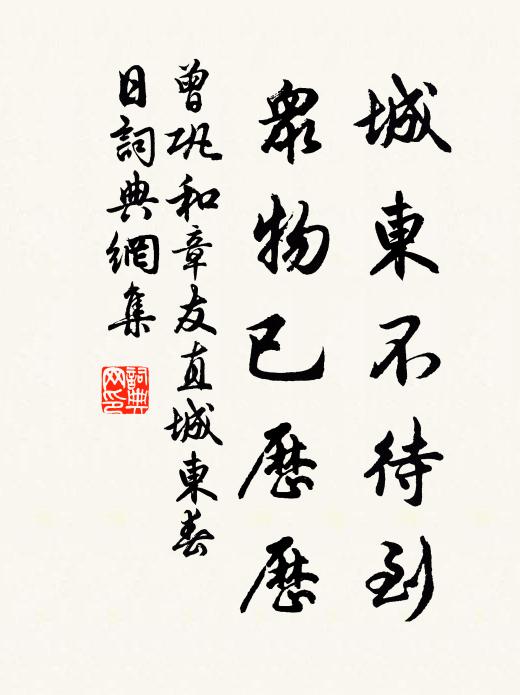 城東不待到
眾物已歷歷
曾巩和章友直城東春
日詞典網集
詞典
网印